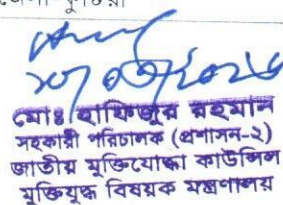 জেলা কুষ্টিয়া
মোঃ হাফিজুর রহমান
সহকারী পরিচালক (প্রশাসন-২)
জাতীয় মুক্তিযোদ্ধা কাউন্সিল
মুক্তিযুদ্ধ বিষয়ক মন্ত্রণালয়